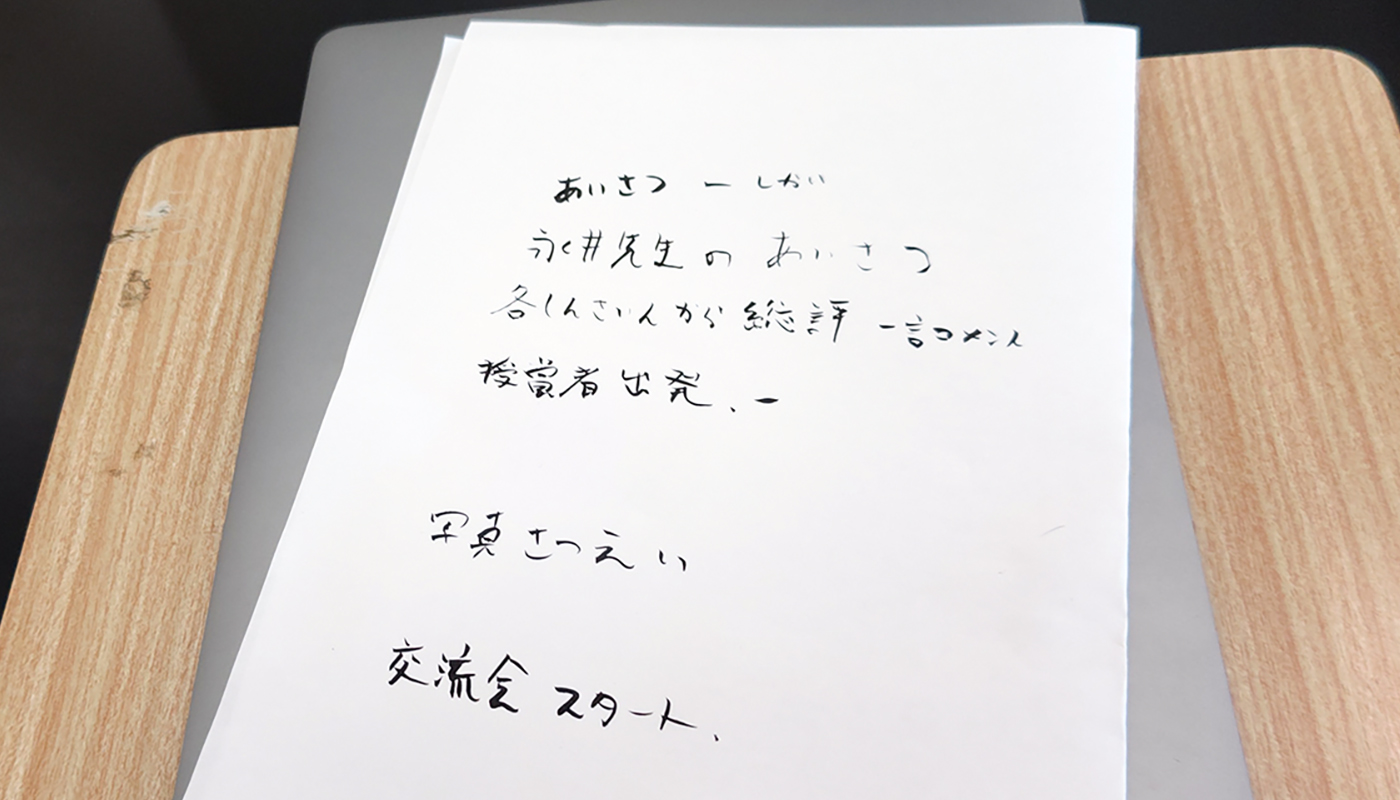 あいさつ ー しかい
永井先生の あいさつ
各しんさいんから 総評 一言コメント
授賞者 出発、ー
写真さつえい
交流会 スタート、